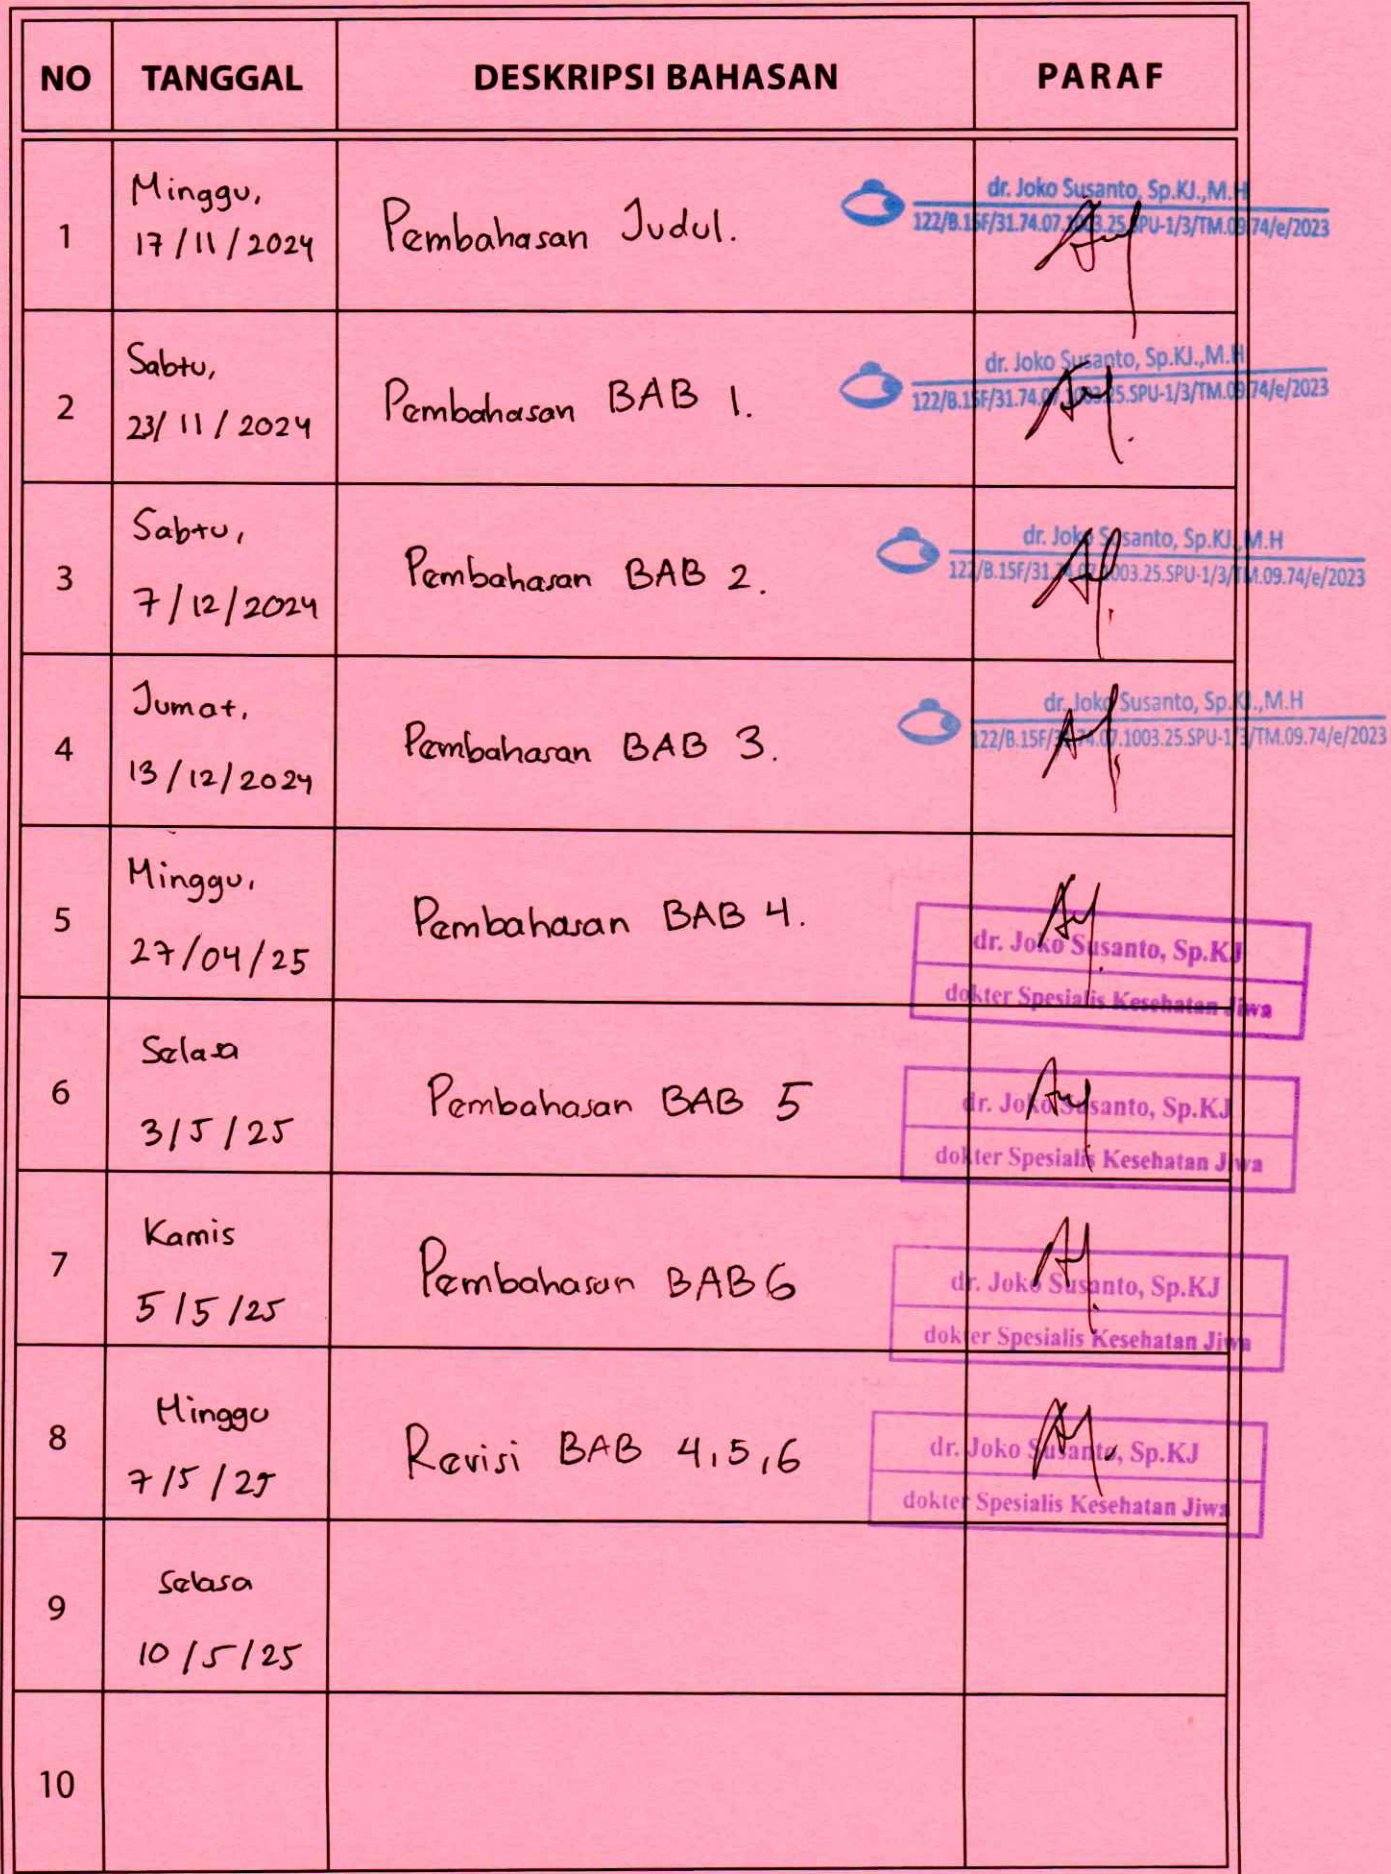 NO TANGGAL DESKRIPSI BAHASAN PARAF
1
Minggu,
17/11/2024
Pembahasan Judul.
dr. Joko Susanto, Sp.KJ.,M.H
122/B.15F/31.74.07.1003.25.SPU-1/3/TM.09.74/e/2023
2
Sabtu,
23/11/2024
Pembahasan BAB 1.
dr. Joko Susanto, Sp.KJ.,M.H
122/B.15F/31.74.07.1003.25.SPU-1/3/TM.09.74/e/2023
3
Sabtu,
7/12/2024
Pembahasan BAB 2.
dr. Joko Susanto, Sp.KJ.,M.H
122/B.15F/31.74.07.1003.25.SPU-1/3/TM.09.74/e/2023
4
Jumat,
13/12/2024
Pembahasan BAB 3.
dr. Joko Susanto, Sp.KJ.,M.H
122/B.15F/31.74.07.1003.25.SPU-1/3/TM.09.74/e/2023
5
Minggu,
27/04/25
Pembahasan BAB 4.
dr. Joko Susanto, Sp.KJ
dokter Spesialis Kesehatan Jiwa
6
Selasa
3/5/25
Pembahasan BAB 5
dr. Joko Susanto, Sp.KJ
dokter Spesialis Kesehatan Jiwa
7
Kamis
5/5/25
Pembahasan BAB 6
dr. Joko Susanto, Sp.KJ
dokter Spesialis Kesehatan Jiwa
8
Minggu
7/5/25
Revisi BAB 4,5,6
dr. Joko Susanto, Sp.KJ
dokter Spesialis Kesehatan Jiwa
9
Selasa
10/5/25
10